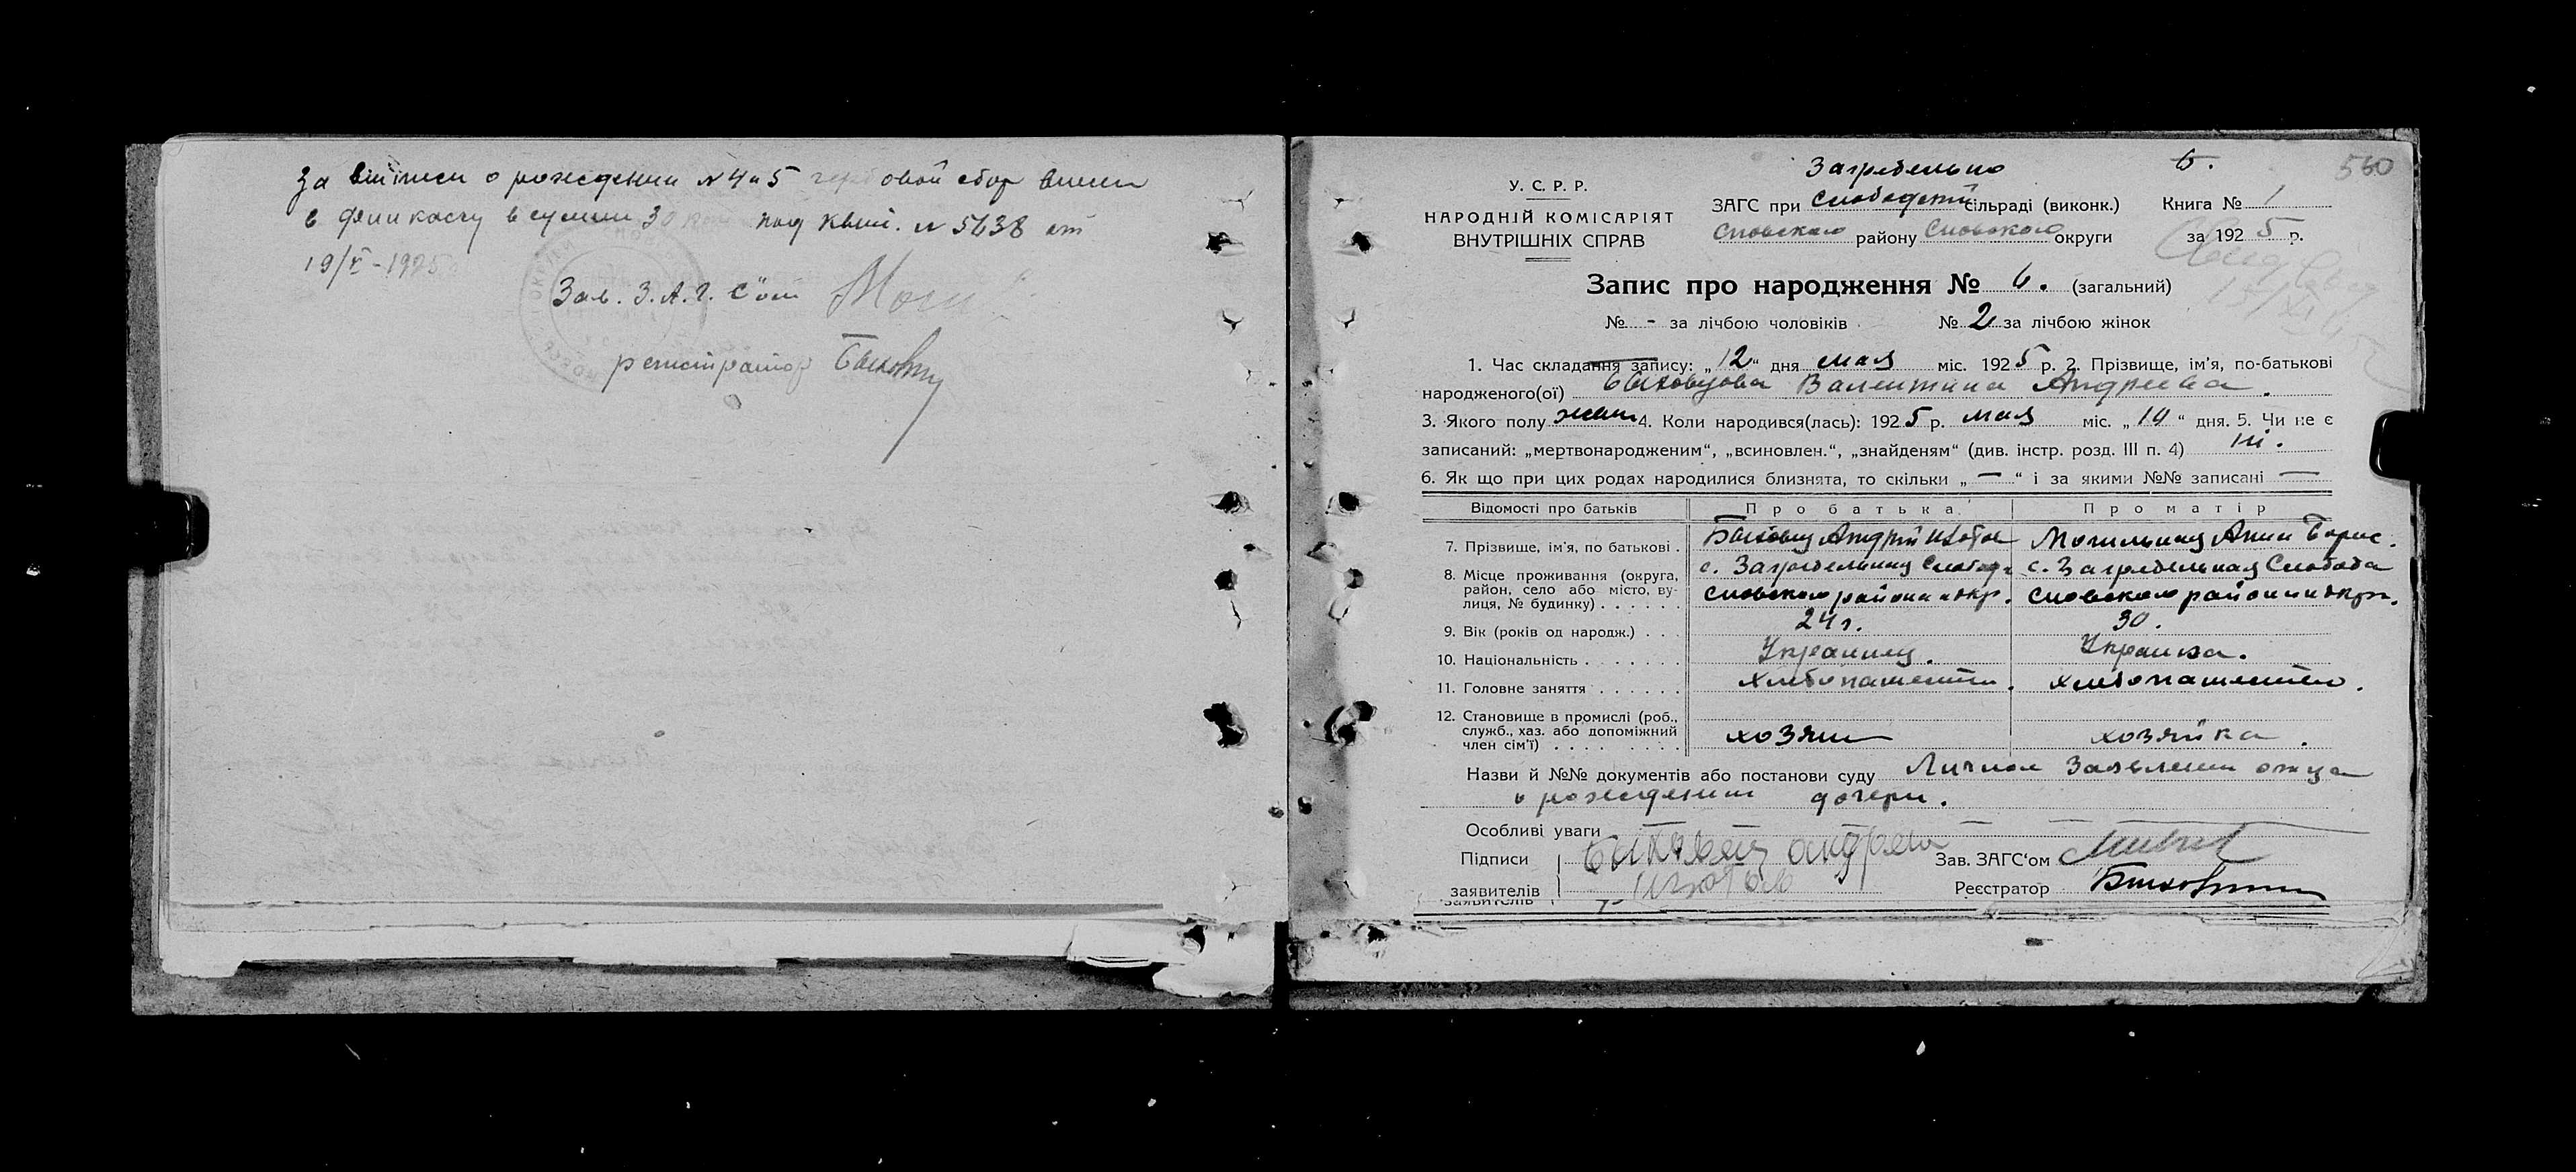 За выписи о рождении №4 и 5 гербовой сбор внесен
в финкассу в сумме 30 коп под квит. №5638 от
19/V-1925
Зав. З.А.Г.С'ом
регистратор Быковец
560
6.
У. С. Р. Р.
НАРОДНІЙ КОМІСАРІЯТ
ВНУТРІШНІХ СПРАВ
Загребельно
ЗАГС при Слободській сільраді (виконк.) Книга № 1
Сновского району Сновского округи за 1925 р.
Запис про народження № 6. (загальний)
№ - за лічбою чоловіків № 2 за лічбою жінок
1. Час складання запису: „12“ дня мая міс. 1925 р. 2. Прізвище, ім'я, по-батькові
народженого(ої) Быковцова Валентина Андреева.
3. Якого полу жен 4. Коли народився(лась): 1925 р. мая міс. „10“ дня. 5. Чи не є
записаний: „мертвонародженим“, „всиновлен.“, „знайденям“ (див. інстр. розд. III п. 4) ні.
6. Як що при цих родах народилися близнята, то скільки „—“ і за якими №№ записані —
Відомості про батьків Про батька Про матір
7. Прізвище, ім'я, по батькові . Быковец Андрій Могильная Анна Борис.
8. Місце проживання (округа, с. Загребельная Слобод. с. Загребельная Слобода
район, село або місто, ву- Сновского района и окр. Сновского района и окр.
лиця, № будинку) . . . . . .
9. Вік (років од народж.) . . . 24 г. 30.
10. Національність . . . . . . . Украинец. Украинка.
11. Головне заняття . . . . . . Хлебопашество. хлебопашество.
12. Становище в промислі (роб.,
служб., хаз. або допоміжний хозяин хозяйка.
член сім'ї) . . . . . . . .
Назви й №№ документів або постанови суду Личное Заявление отца
о рождении дочери.
Особливі уваги —
Підписи Быковец андрей Зав. ЗАГС'ом
заявителів Реєстратор Быковец
заявителів